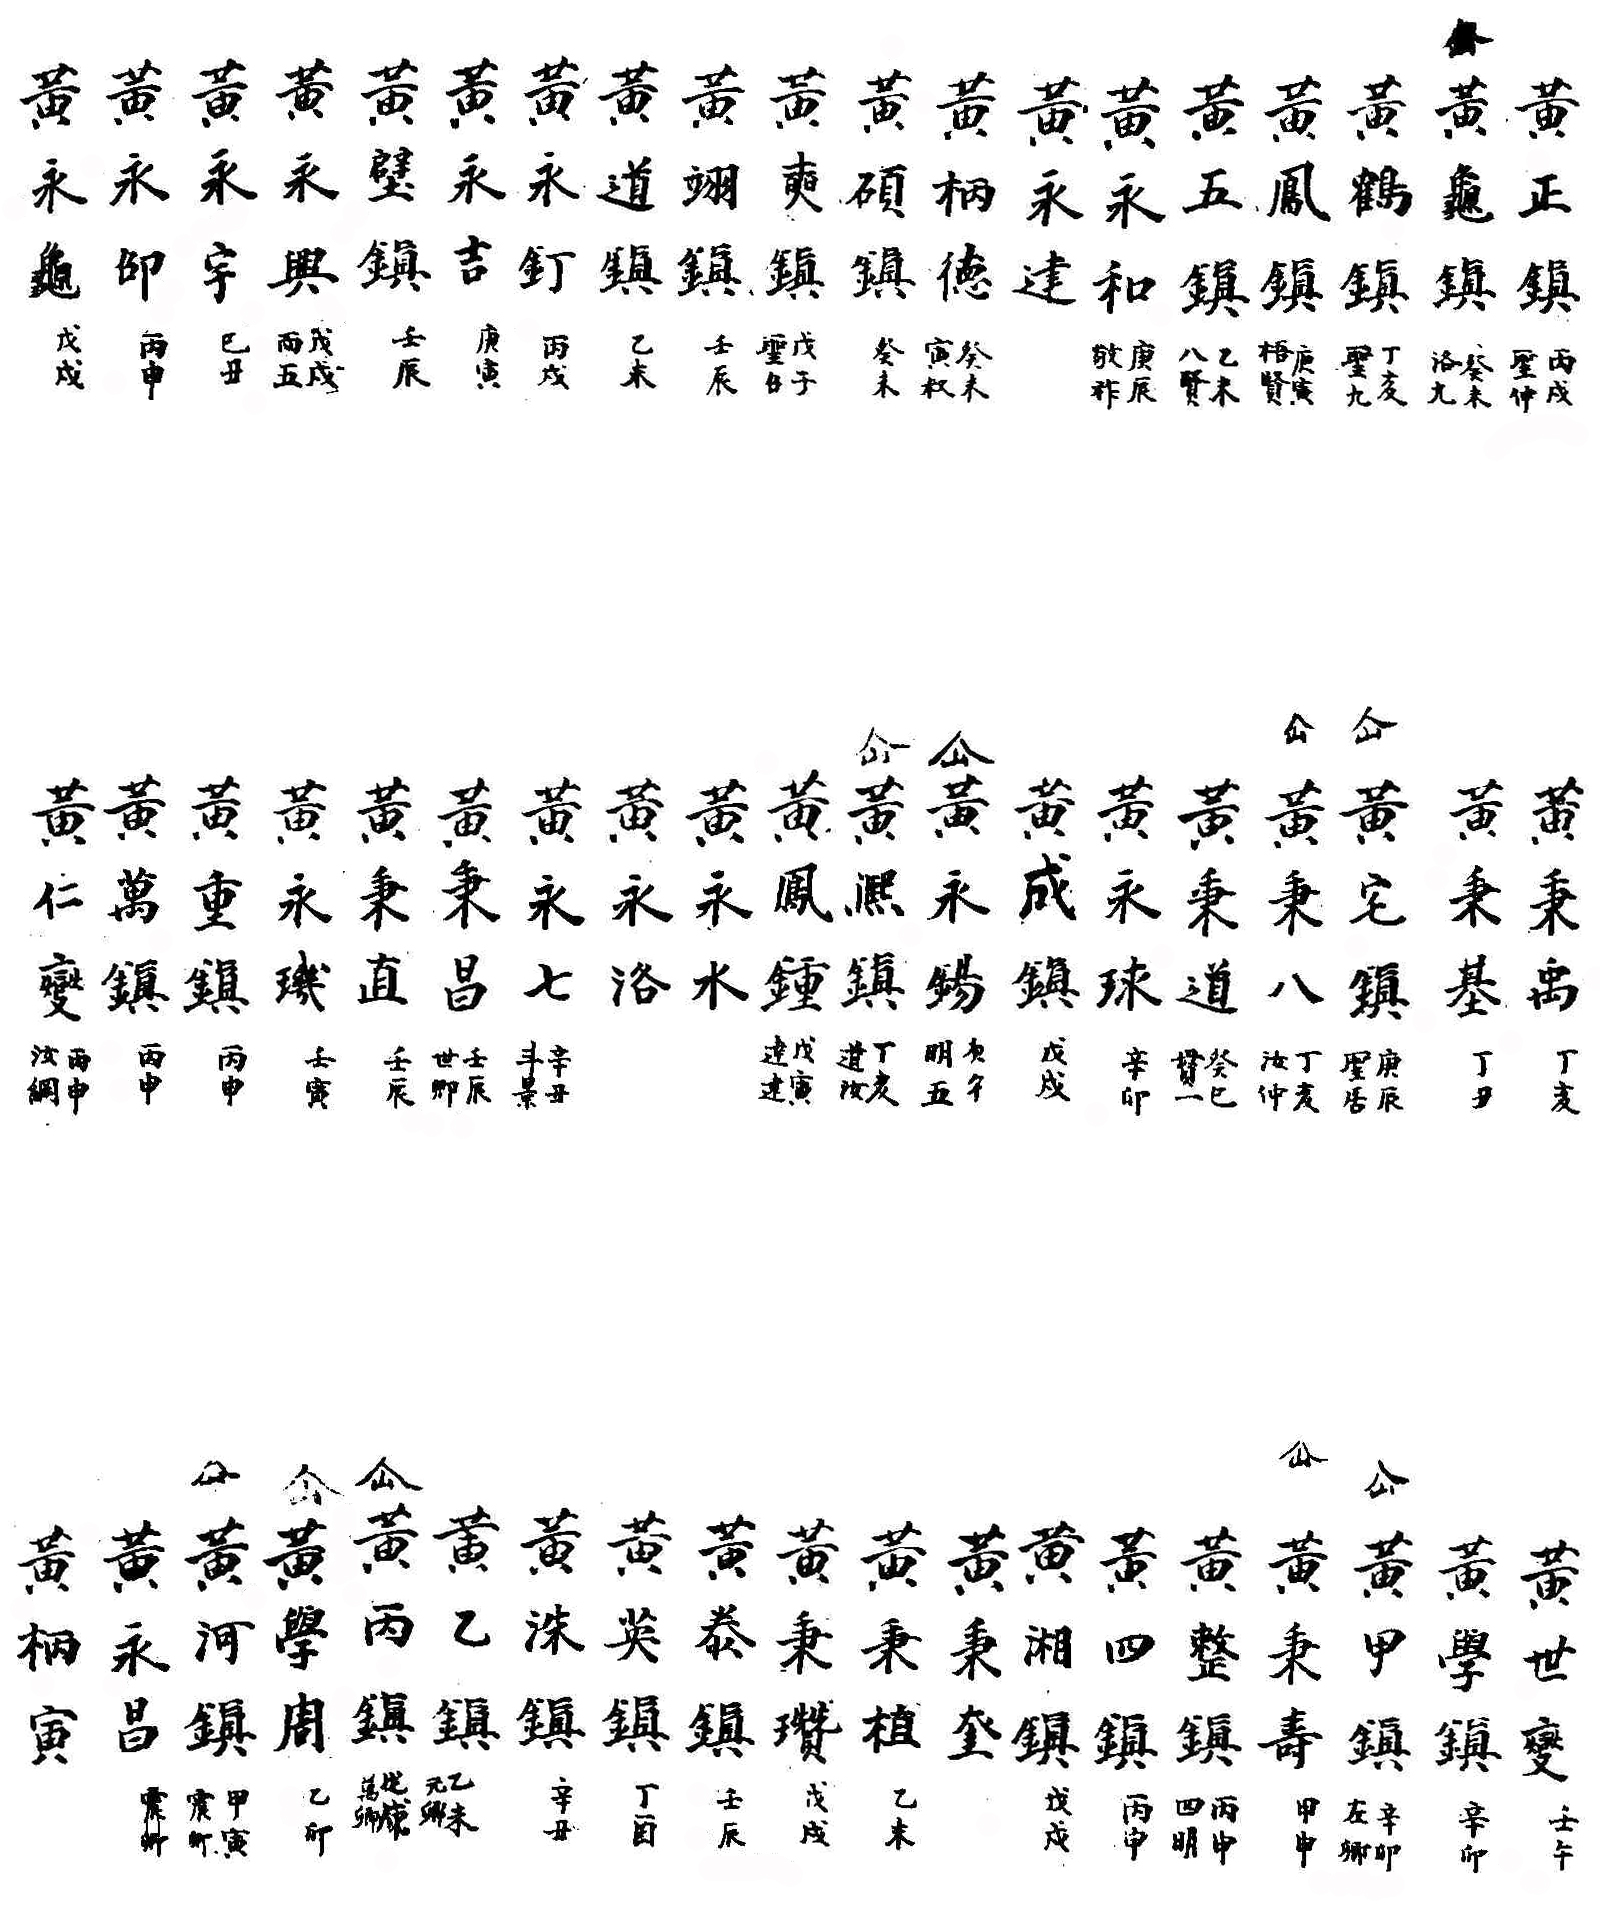 黃正鎮 丙戌 聖仲
黃龜鎮 癸未 洛九
黃鶴鎮 丁亥 聖九
黃鳳鎮 庚寅 梧賢
黃五鎮 乙未 八賢
黃永和 庚辰 敬祚
黃永達
黃柄德 癸未 寅叔
黃碩鎮 癸未
黃奭鎮 戊子
黃翊鎮 壬辰
黃道鎮 乙未
黃永釘 丙戌
黃永吉 庚寅
黃璧鎮 壬辰
黃永興 戊戌 而五
黃永宇 己丑
黃永卬 丙申
黃永龜 戊戌
黃秉禹 丁亥
黃秉基 丁丑
仚 黃宅鎮 庚辰 聖居
仚 黃秉八 丁亥 汝仲
黃秉道 癸巳 貫一
黃永球 辛卯
黃成鎮 戊戌
仚 黃永錫 庚午 明五
仚 黃熙鎮 丁亥 道汝
黃鳳鍾 戊寅 達建
黃永水
黃永洛
黃永七 辛丑 斗景
黃秉昌 壬辰 世卿
黃秉直 壬辰
黃永璣 壬寅
黃重鎮 丙申
黃萬鎮 丙申
黃仁燮 丙申 汝綱
黃世燮 壬午
黃學鎮 辛卯
仚 黃甲鎮 辛卯 左卿
仚 黃秉壽 甲申
黃整鎮 丙申 四明
黃四鎮 丙申
黃湘鎮 戊戌
黃秉奎
黃秉植 乙未
黃秉瓚 戊戌
黃泰鎮 壬辰
黃英鎮 丁酉
黃洙鎮 辛丑
黃乙鎮 乙未 元卿
仚 黃丙鎮 萬卿
仚 黃學周 乙卯
仚 黃河鎮 甲寅 震卿
黃永昌 震卿
黃柄寅